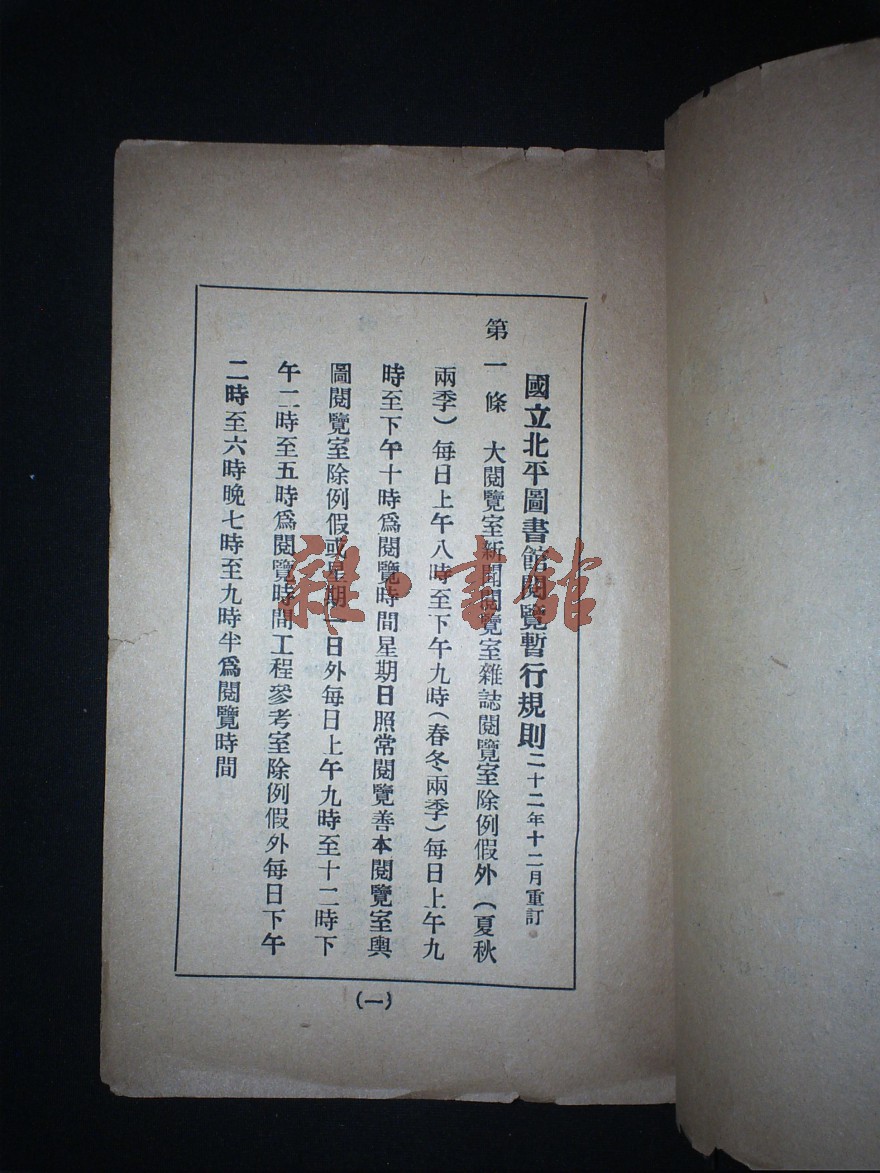 國立北平圖書館閱覽暫行規則二十二年十二月重訂
第一條　大閱覽室新聞閱覽室雜誌閱覽室除例假外（夏秋
兩季）每日上午八時至下午九時（春冬兩季）每日上午九
時至下午十時爲閱覽時間星期日照常閱覽善本閱覽室輿
圖閱覽室除例假或星期一日外每日上午九時至十二時下
午二時至五時爲閱覽時間工程參考室除例假外每日下午
二時至六時晚七時至九時半爲閱覽時間
(一)
雜·書館